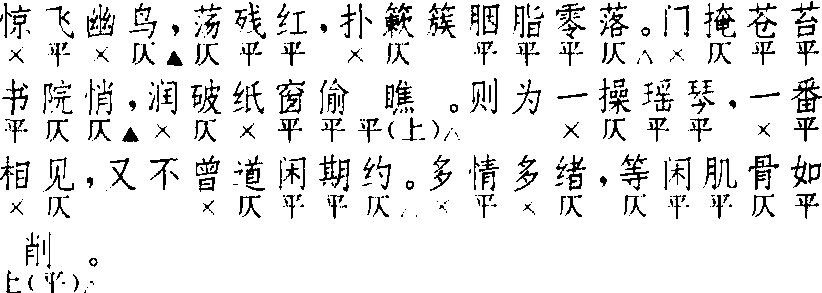 惊飞幽鸟，荡残红，扑簌簌胭脂零落。门掩苍苔
×平×仄▲仄平平，×仄 平平平仄△×仄平平
书院悄，润破纸窗偷瞧。则为一操瑶琴，一番
平仄仄▲×仄×平平平(上)△ ×仄平平，×平
相见，又不曾道闲期约。多情多绪，等闲肌骨如
×仄 ×仄平平仄△×平×仄 仄平平仄平
削。
上(平)△